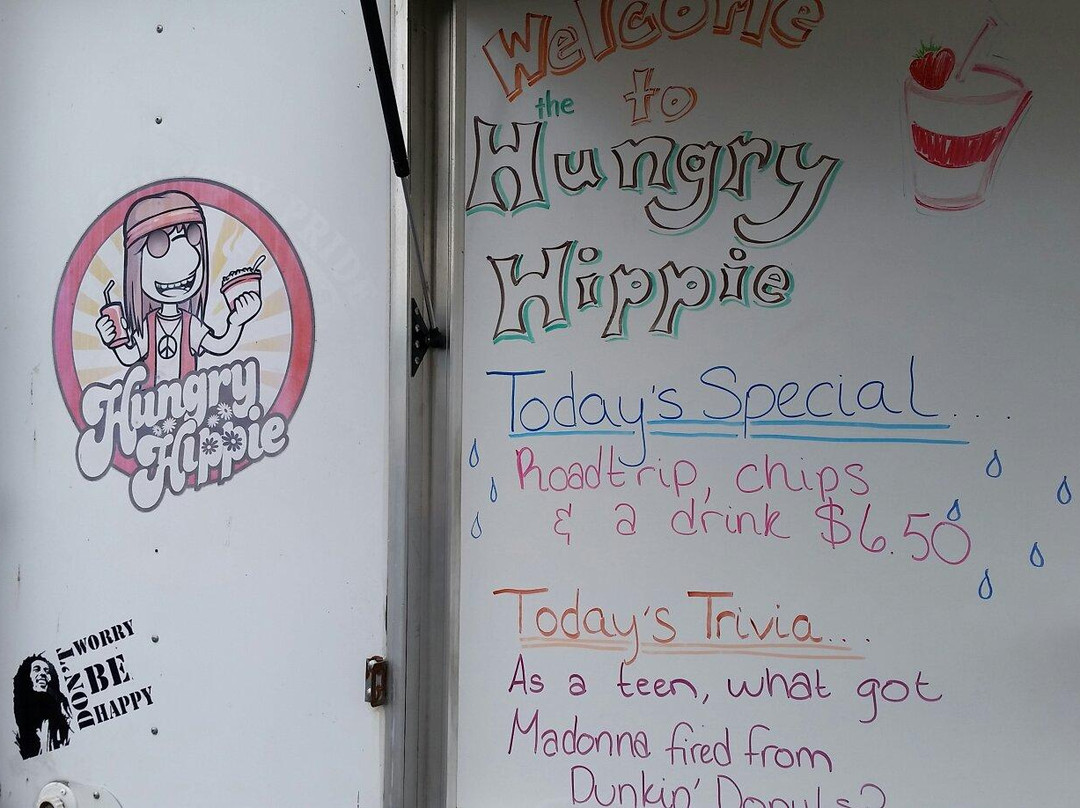 Hungry
Hippie
DON'T
WORRY
BE
HAPPY
Welcome
to
the
Hungry
Hippie
Today's Special....
Roadtrip, chips
& a drink $6.50
Today's Trivia....
As a teen, what got
Madonna fired from
Dunkin' Donuts?